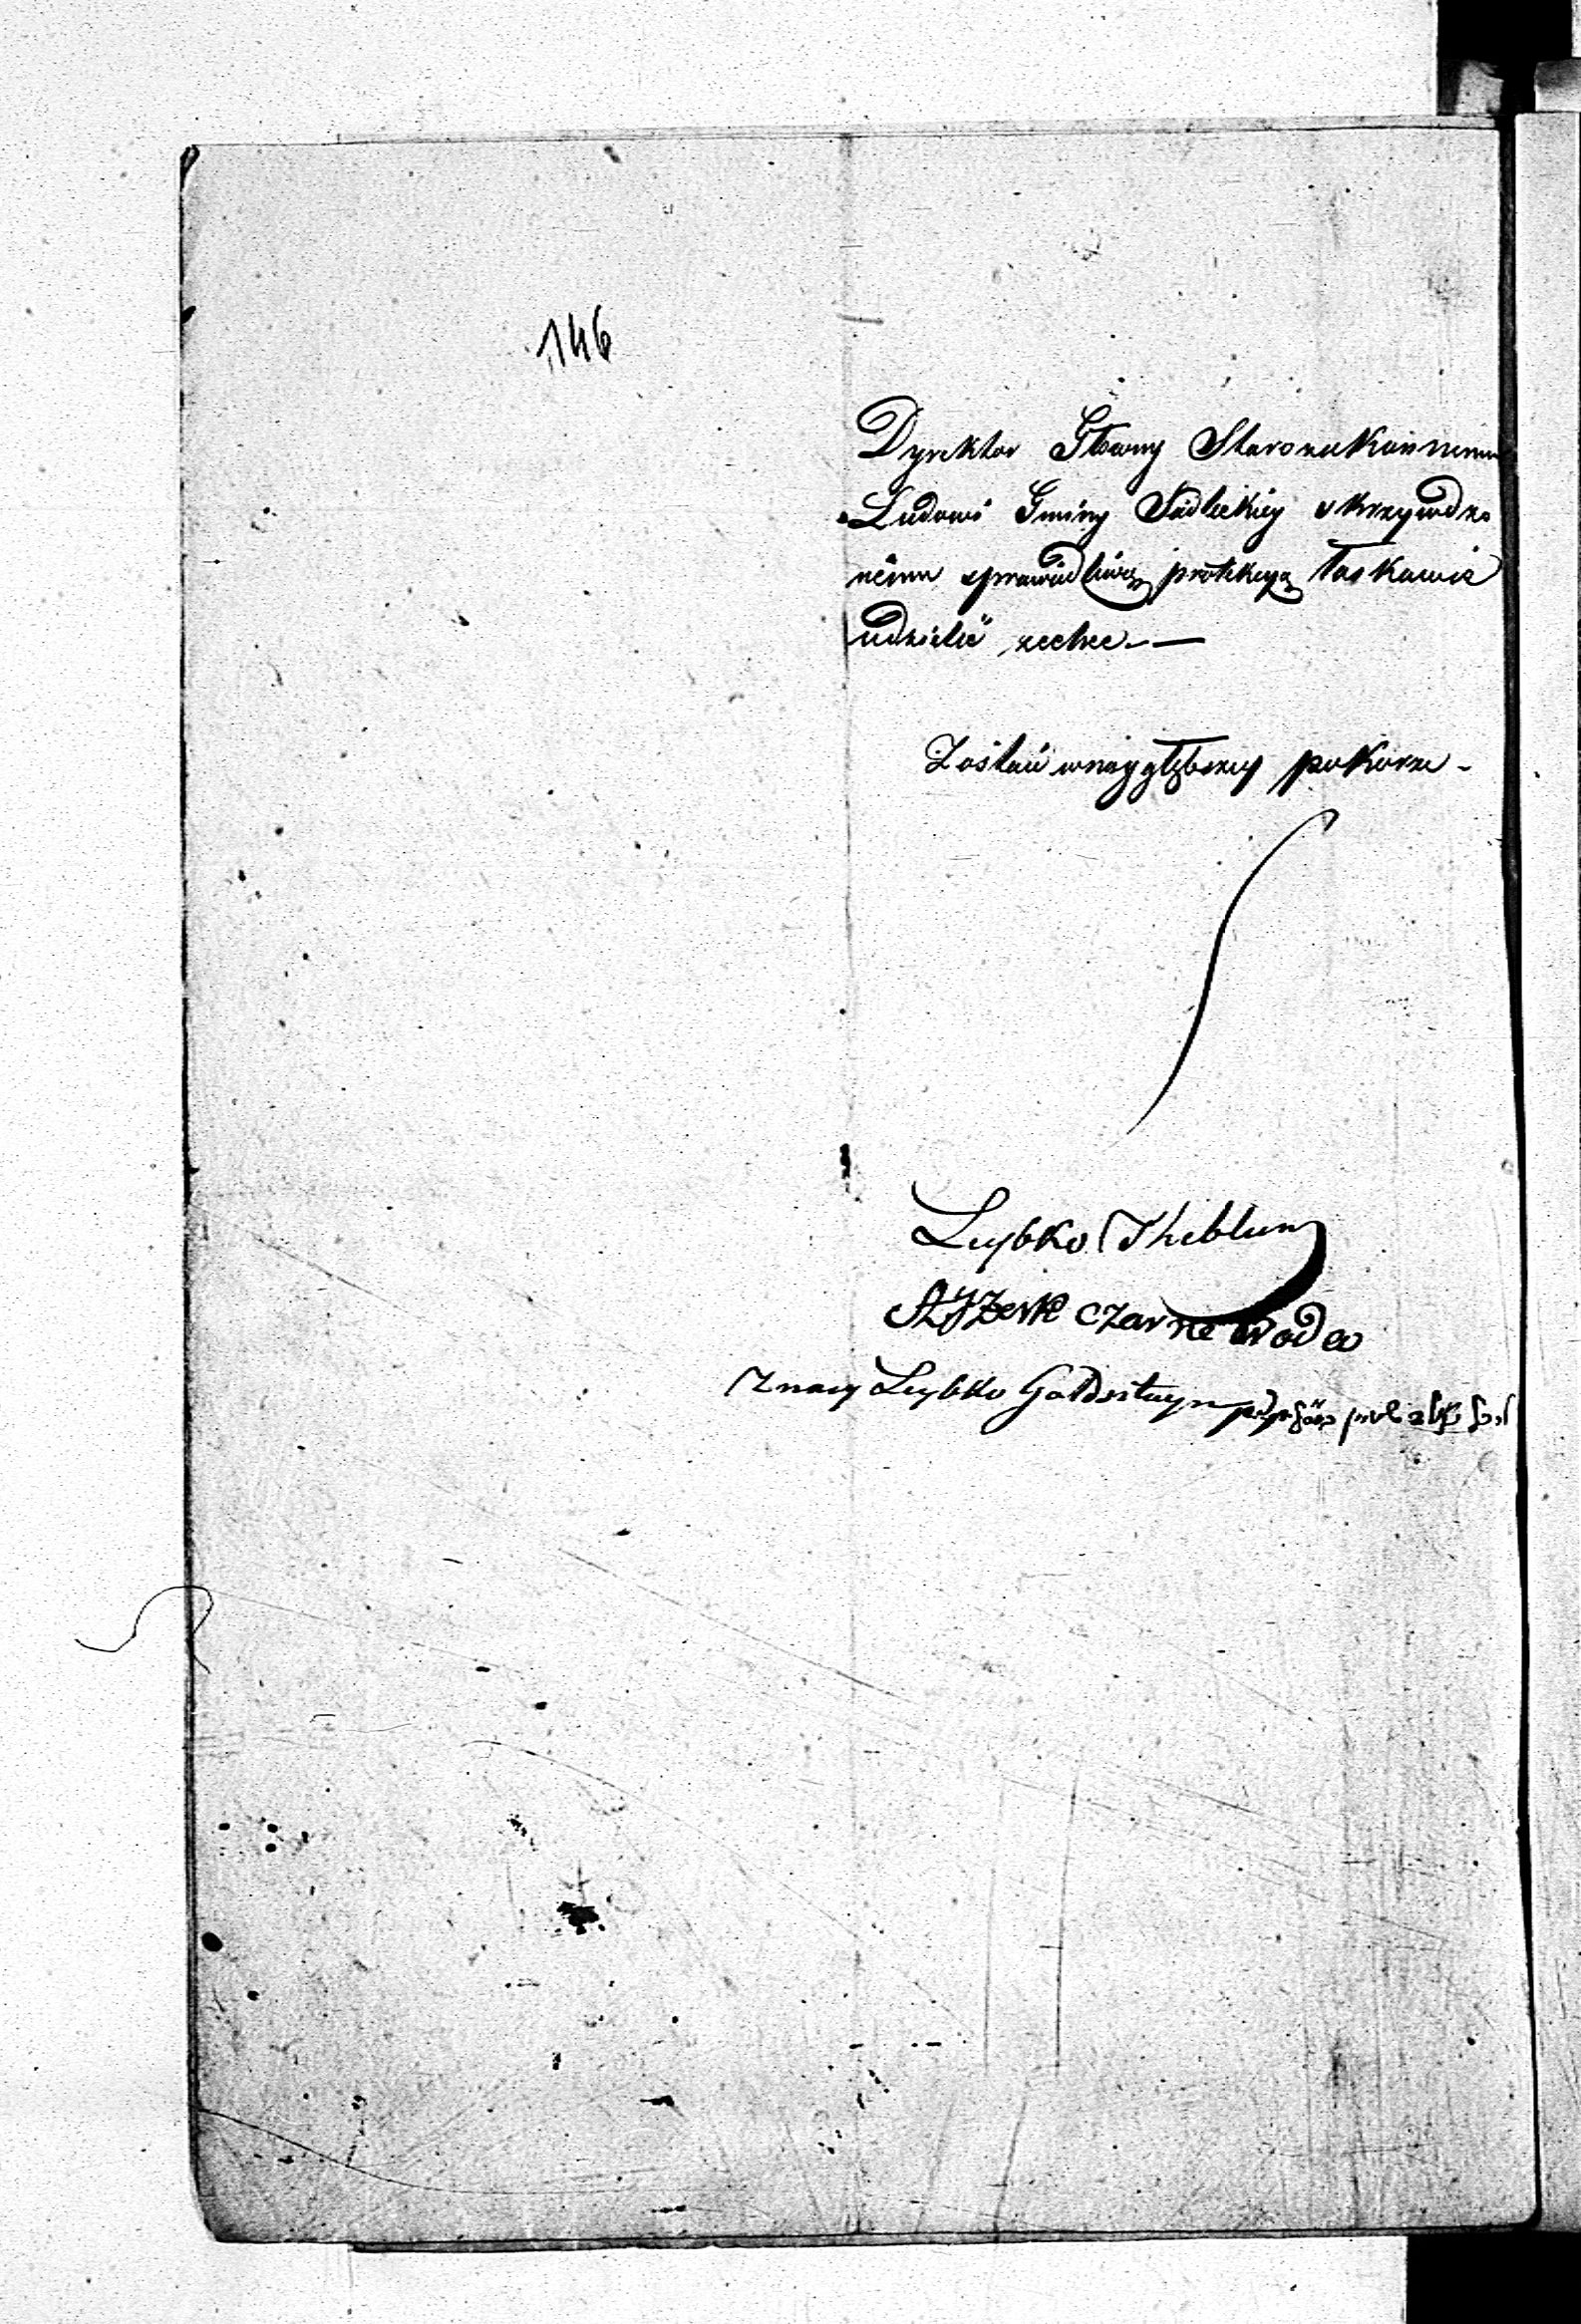 146
Dyrektor Główny Starozakonnemu
Ludowi Gminy Siedleckiey ukrzywdzo
nemu sprawiedliwą protekcyą łaskawie
udzielić zechce.—
Zostaie w naygłębszey pokorze -
Leybko
Czarne woda
Znaey Leybko Goldsztayn